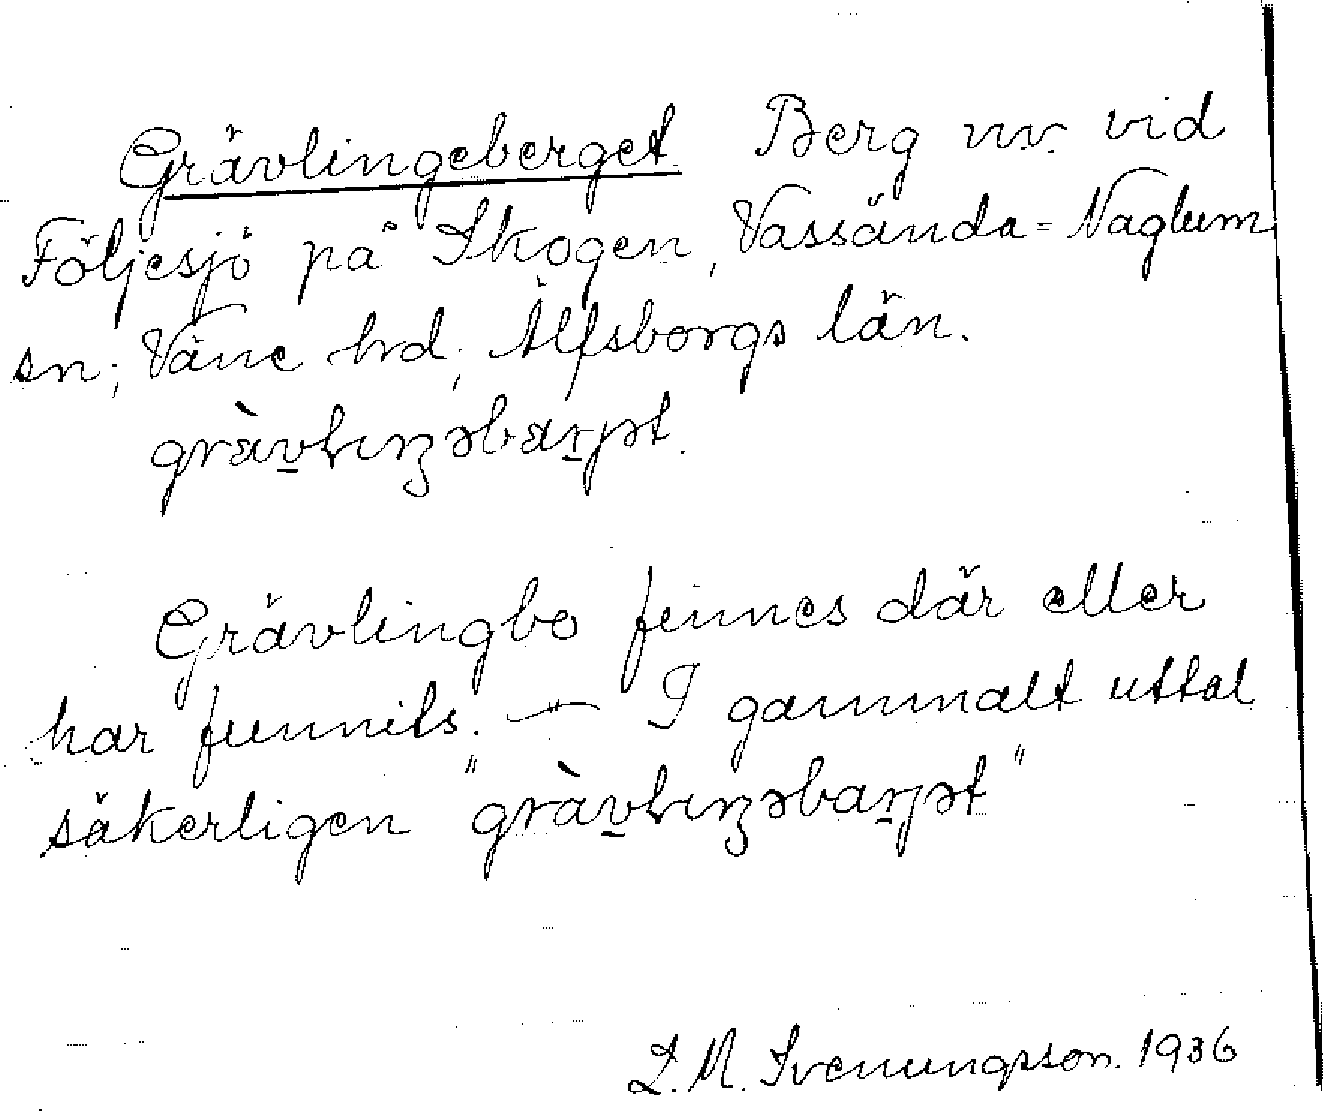 Grävlingeberget. Berg nv. vid
Följesjö på Skogen, Vassända=Naglum
sn; Väne hrd, Älfsborgs län.
gràvlıŋəbarjət.
Grävlingbo finnes där eller
har funnits. — I gammalt uttal
säkerligen "gràvlıŋəbarjət"
L. M. Svenungsson. 1936